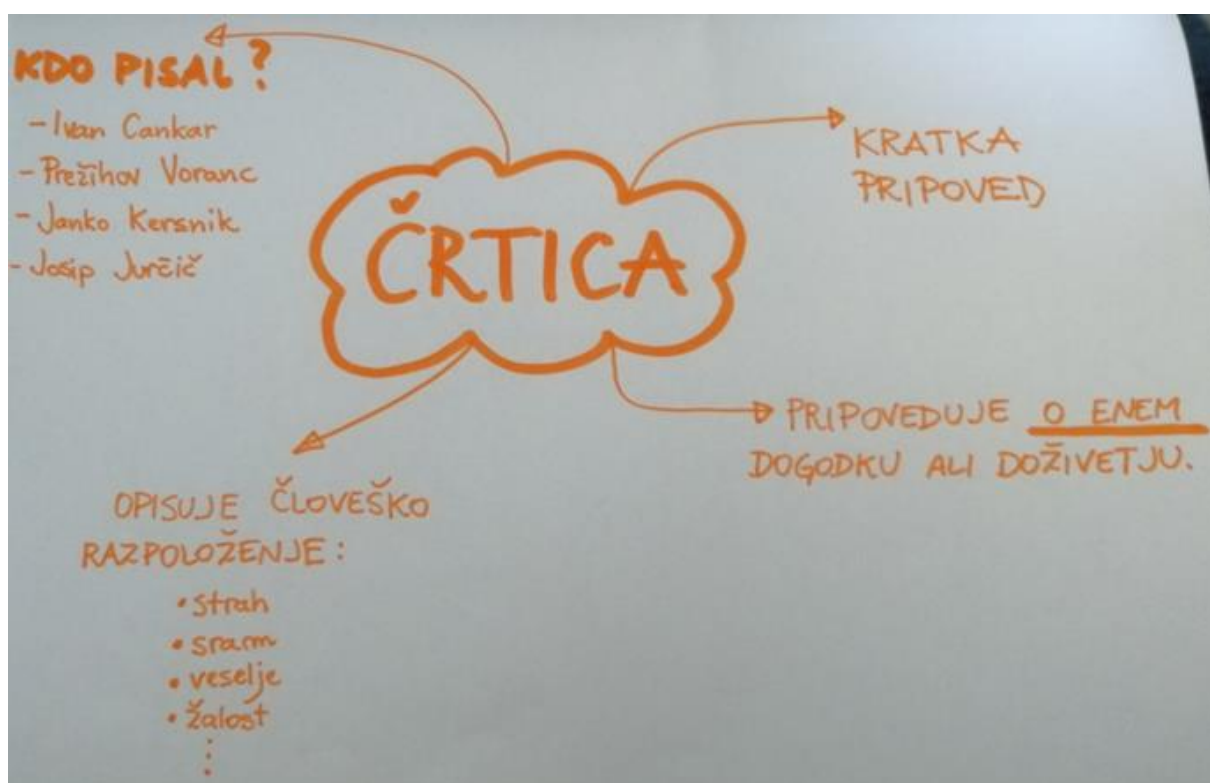 KDO PISAL?
- Ivan Cankar
- Prežihov Voranc
- Janko Kersnik
- Josip Jurčič
ČRTICA
KRATKA
PRIPOVED
PRIPOVEDUJE O ENEM
DOGODKU ALI DOŽIVETJU.
OPISUJE ČLOVEŠKO
RAZPOLOŽENJE:
• strah
• sram
• veselje
• žalost
⋮